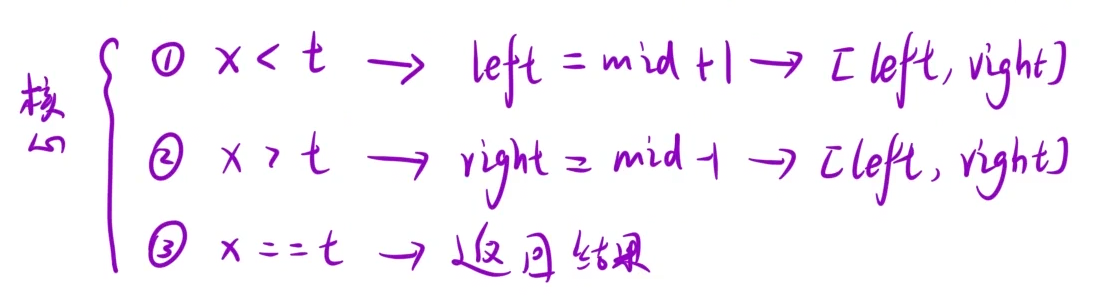 核心
① x < t → left = mid + 1 → [left, right]
② x > t → right = mid - 1 → [left, right]
③ x == t → 返回结果